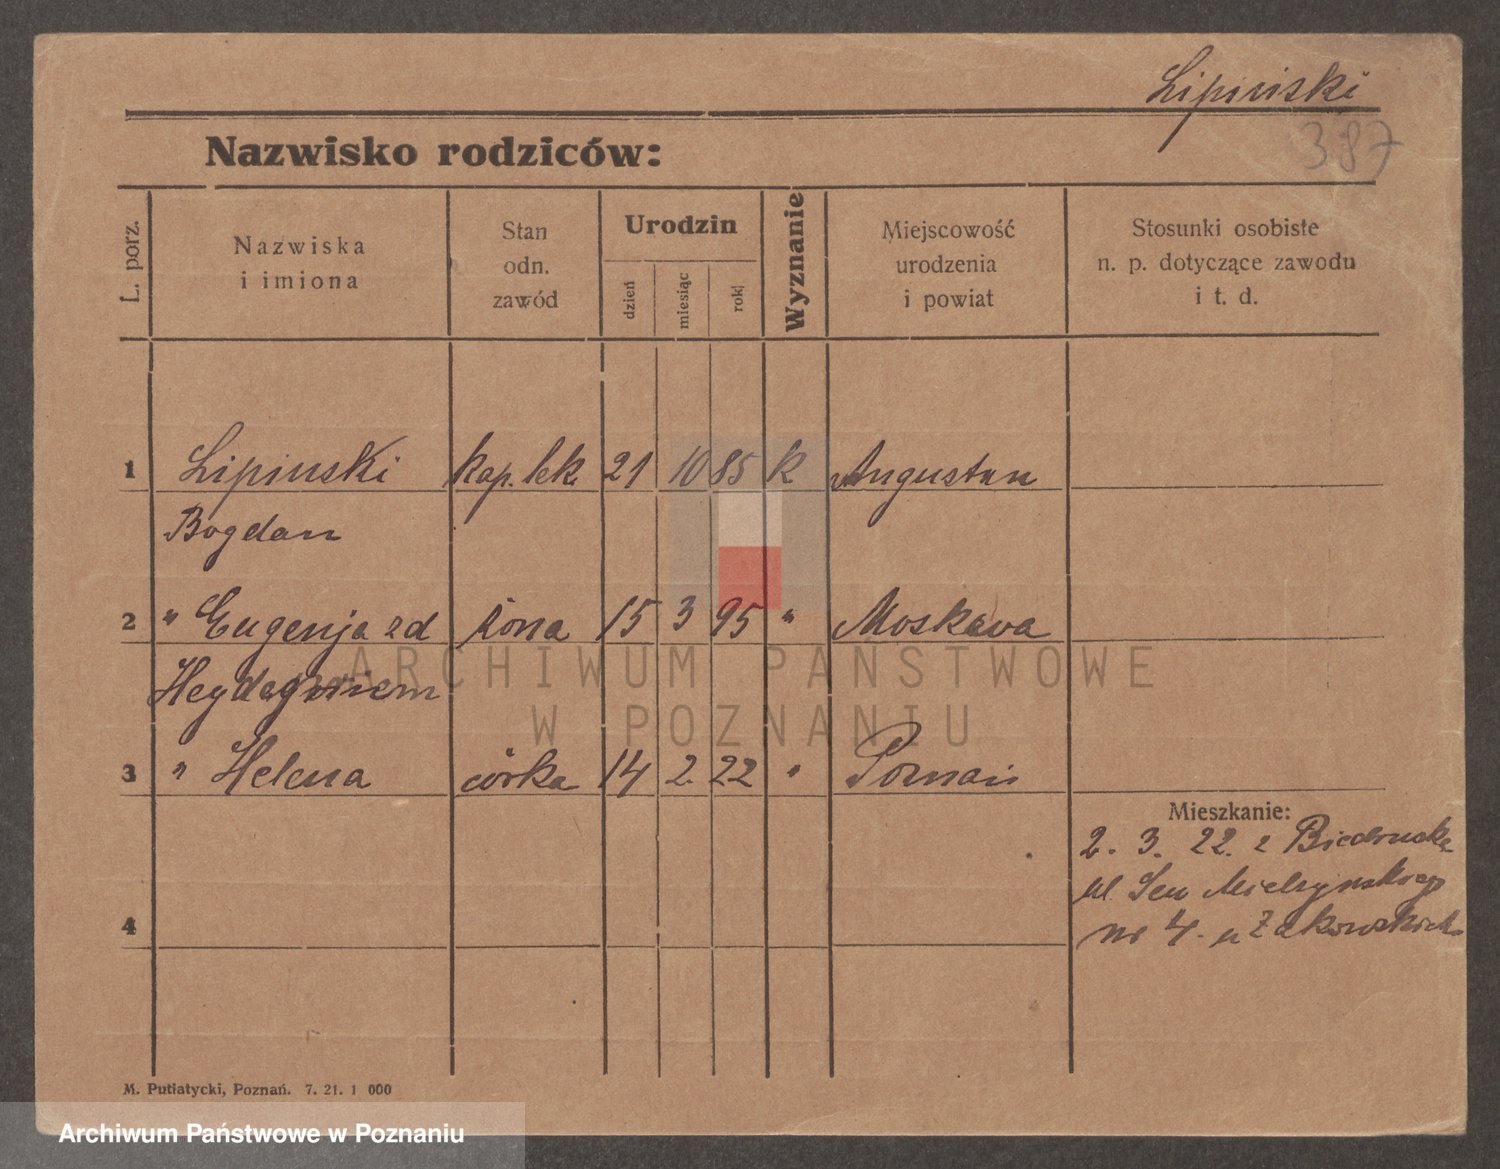 Lipiński
387
Nazwisko rodziców:
L. porz.
Nazwiska
i imiona
Stan
odn.
zawód
Urodzin
dzień
miesiąc
rok
Wyznanie
Miejscowość
urodzenia
i powiat
Stosunki osobiste
n. p. dotyczące zawodu
i t. d.
1 Lipinski kap. lek 21 10 85 k Augustun
Bogdan
2 " Eugenja zd żona 15 3 95 " Moskwa
3 " Helena córka 14 2. 22 " Poznań
Mieszkanie:
2. 3. 22. z Biedruska
ul. Sew Mielżynskiego
4
nr 4. u Żakowskich
M. Putiatycki, Poznań. 7. 21. 1 000
ARCHIWUM PAŃSTWOWE
W POZNANIU
Archiwum Państwowe w Poznaniu